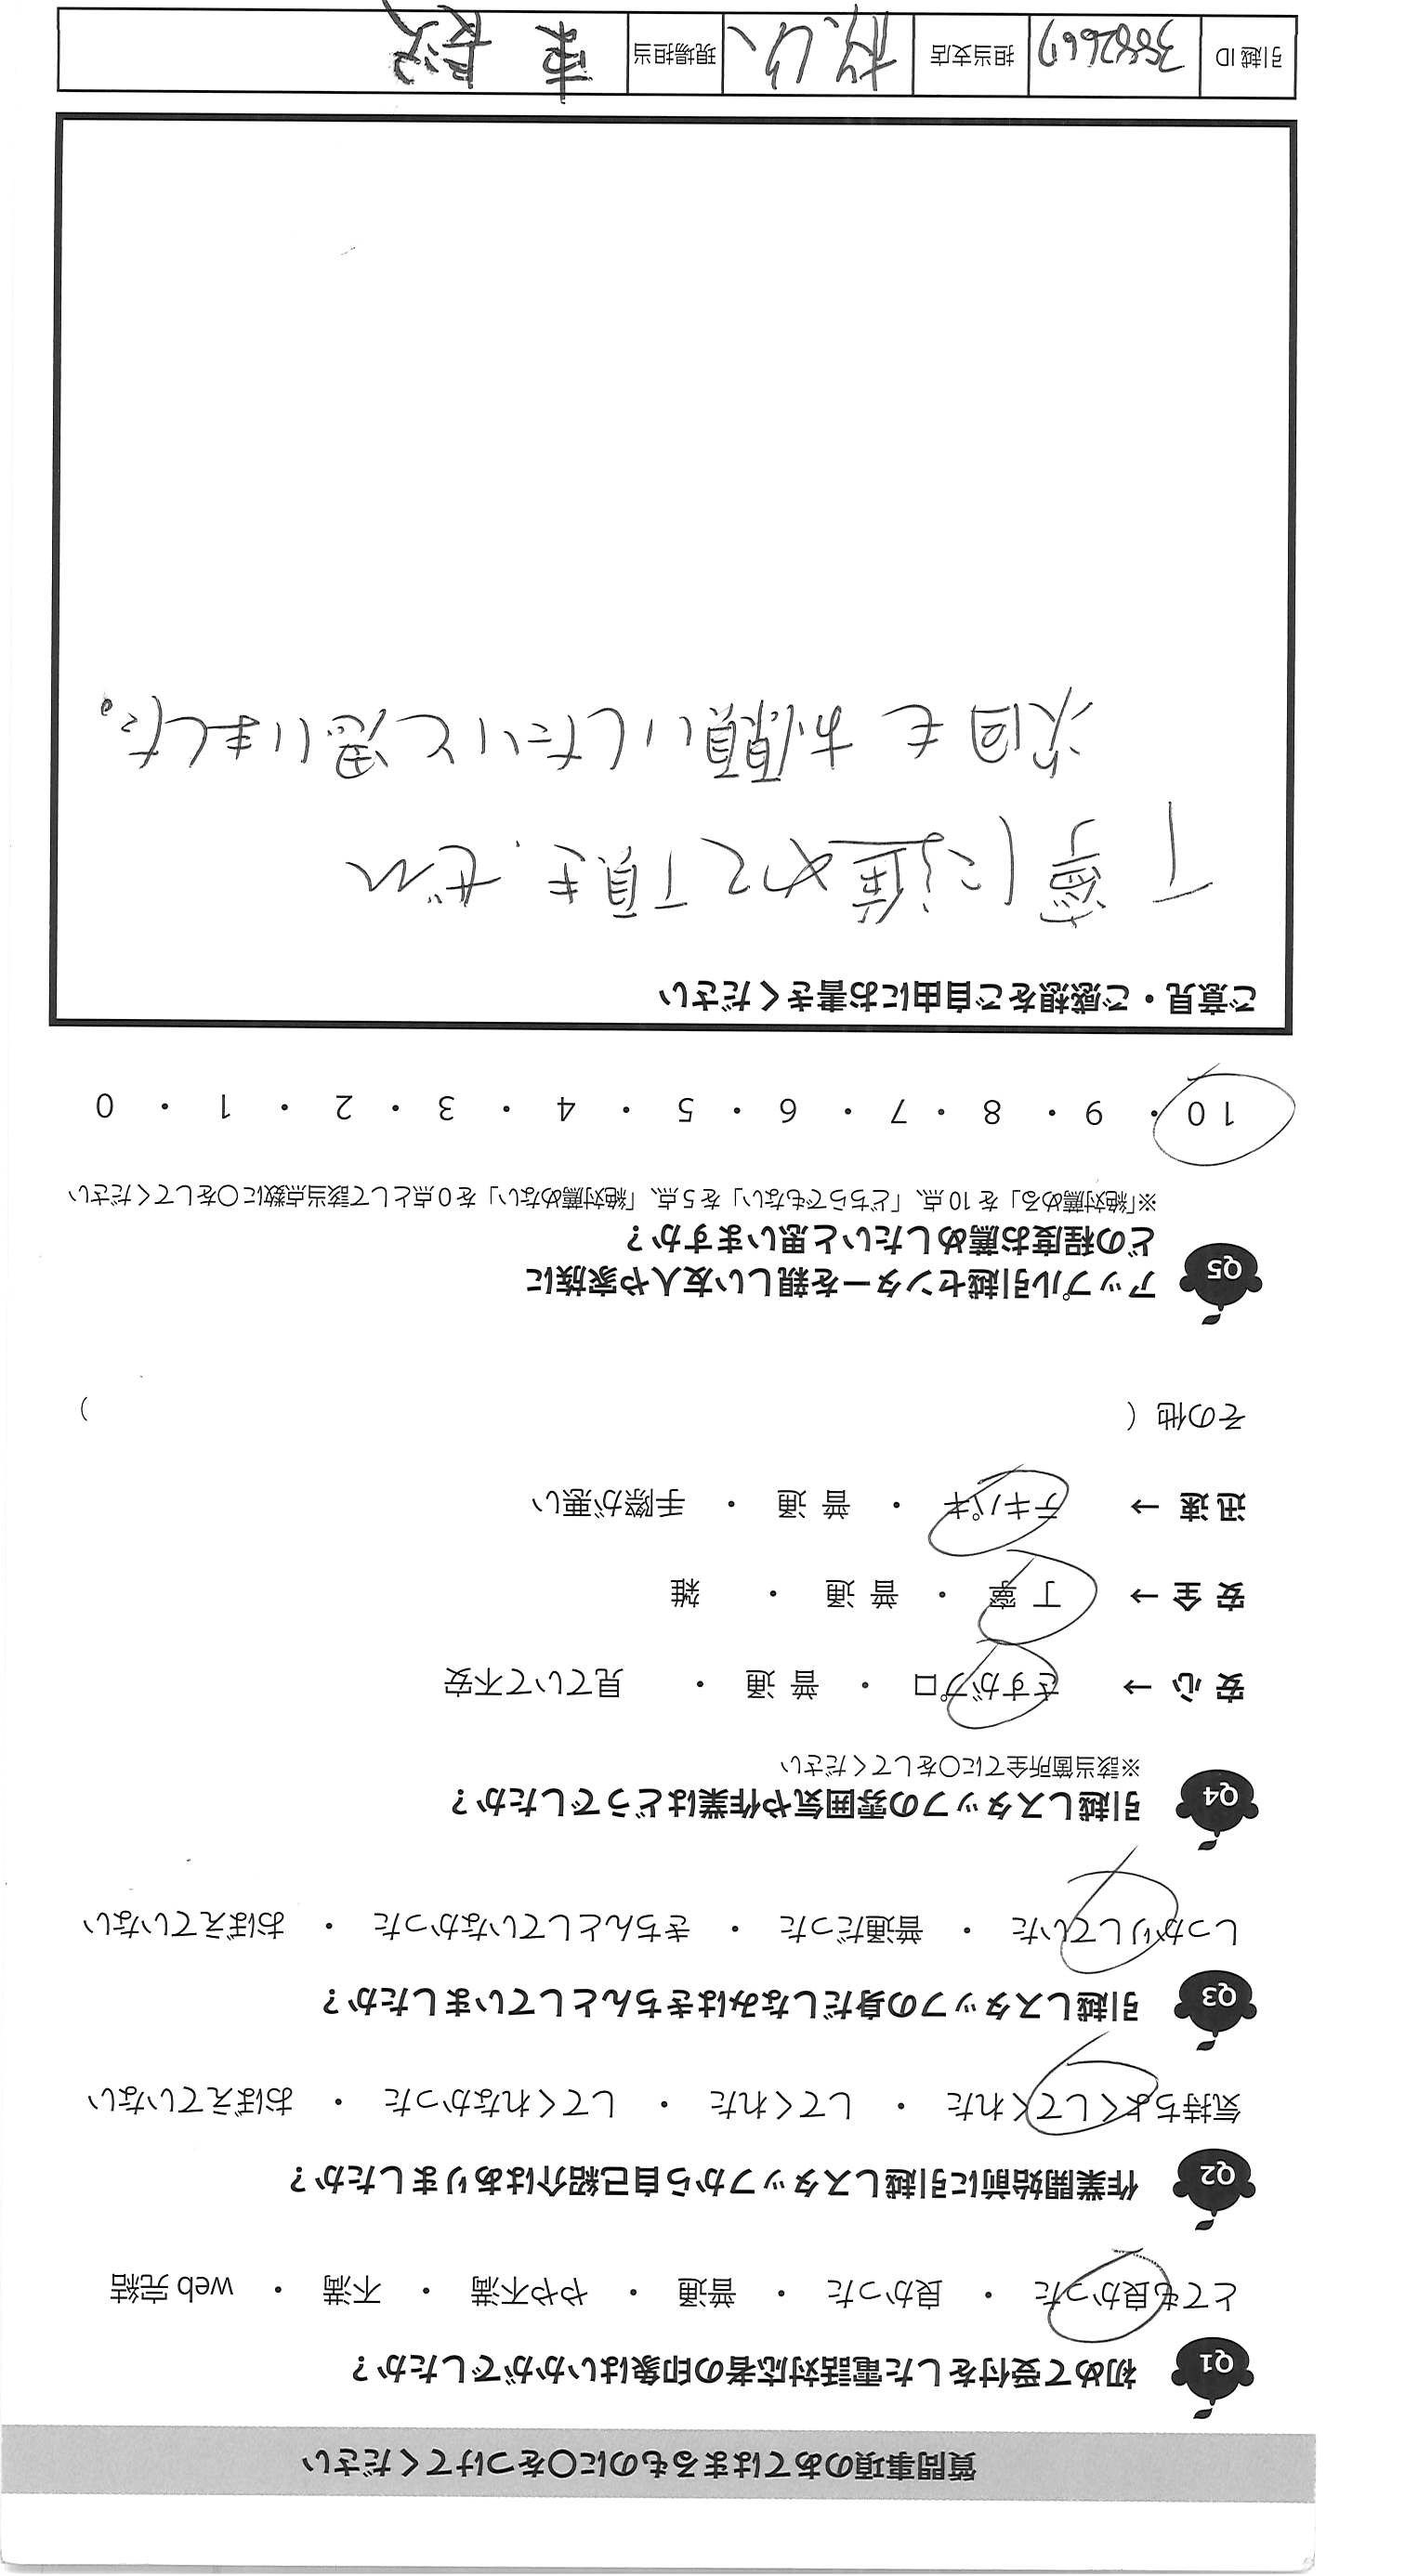 質問事項のあてはまるものに〇をつけてください
Q1 初めて受付をした電話対応者の印象はいかがでしたか？
とても良かった ・ 良かった ・ 普通 ・ やや不満 ・ 不満 ・ web 完結
Q2 作業開始前に引越しスタッフから自己紹介はありましたか？
気持ちよくしてくれた ・ してくれた ・ してくれなかった ・ おぼえていない
Q3 引越しスタッフの身だしなみはきちんとしていましたか？
しっかりしていた ・ 普通だった ・ きちんとしていなかった ・ おぼえていない
Q4 引越しスタッフの雰囲気や作業はどうでしたか？
※該当箇所全てに〇をしてください
安 心 → さすがプロ ・ 普 通 ・ 見ていて不安
安 全 → 丁 寧 ・ 普 通 ・ 雑
迅 速 → テキパキ ・ 普 通 ・ 手際が悪い
その他（ ）
Q5 アップル引越センターを親しい友人や家族に
どの程度お薦めしたいと思いますか？
※「絶対薦める」を 10 点、「どちらでもない」を 5 点、「絶対薦めない」を 0 点として該当点数に〇をしてください
10 ・ 9 ・ 8 ・ 7 ・ 6 ・ 5 ・ 4 ・ 3 ・ 2 ・ 1 ・ 0
ご意見・ご感想をご自由にお書きください
丁寧に進めて頂き、ぜひ
次回もお願いしたいと思いました。
引越 ID 担当支店 現場担当